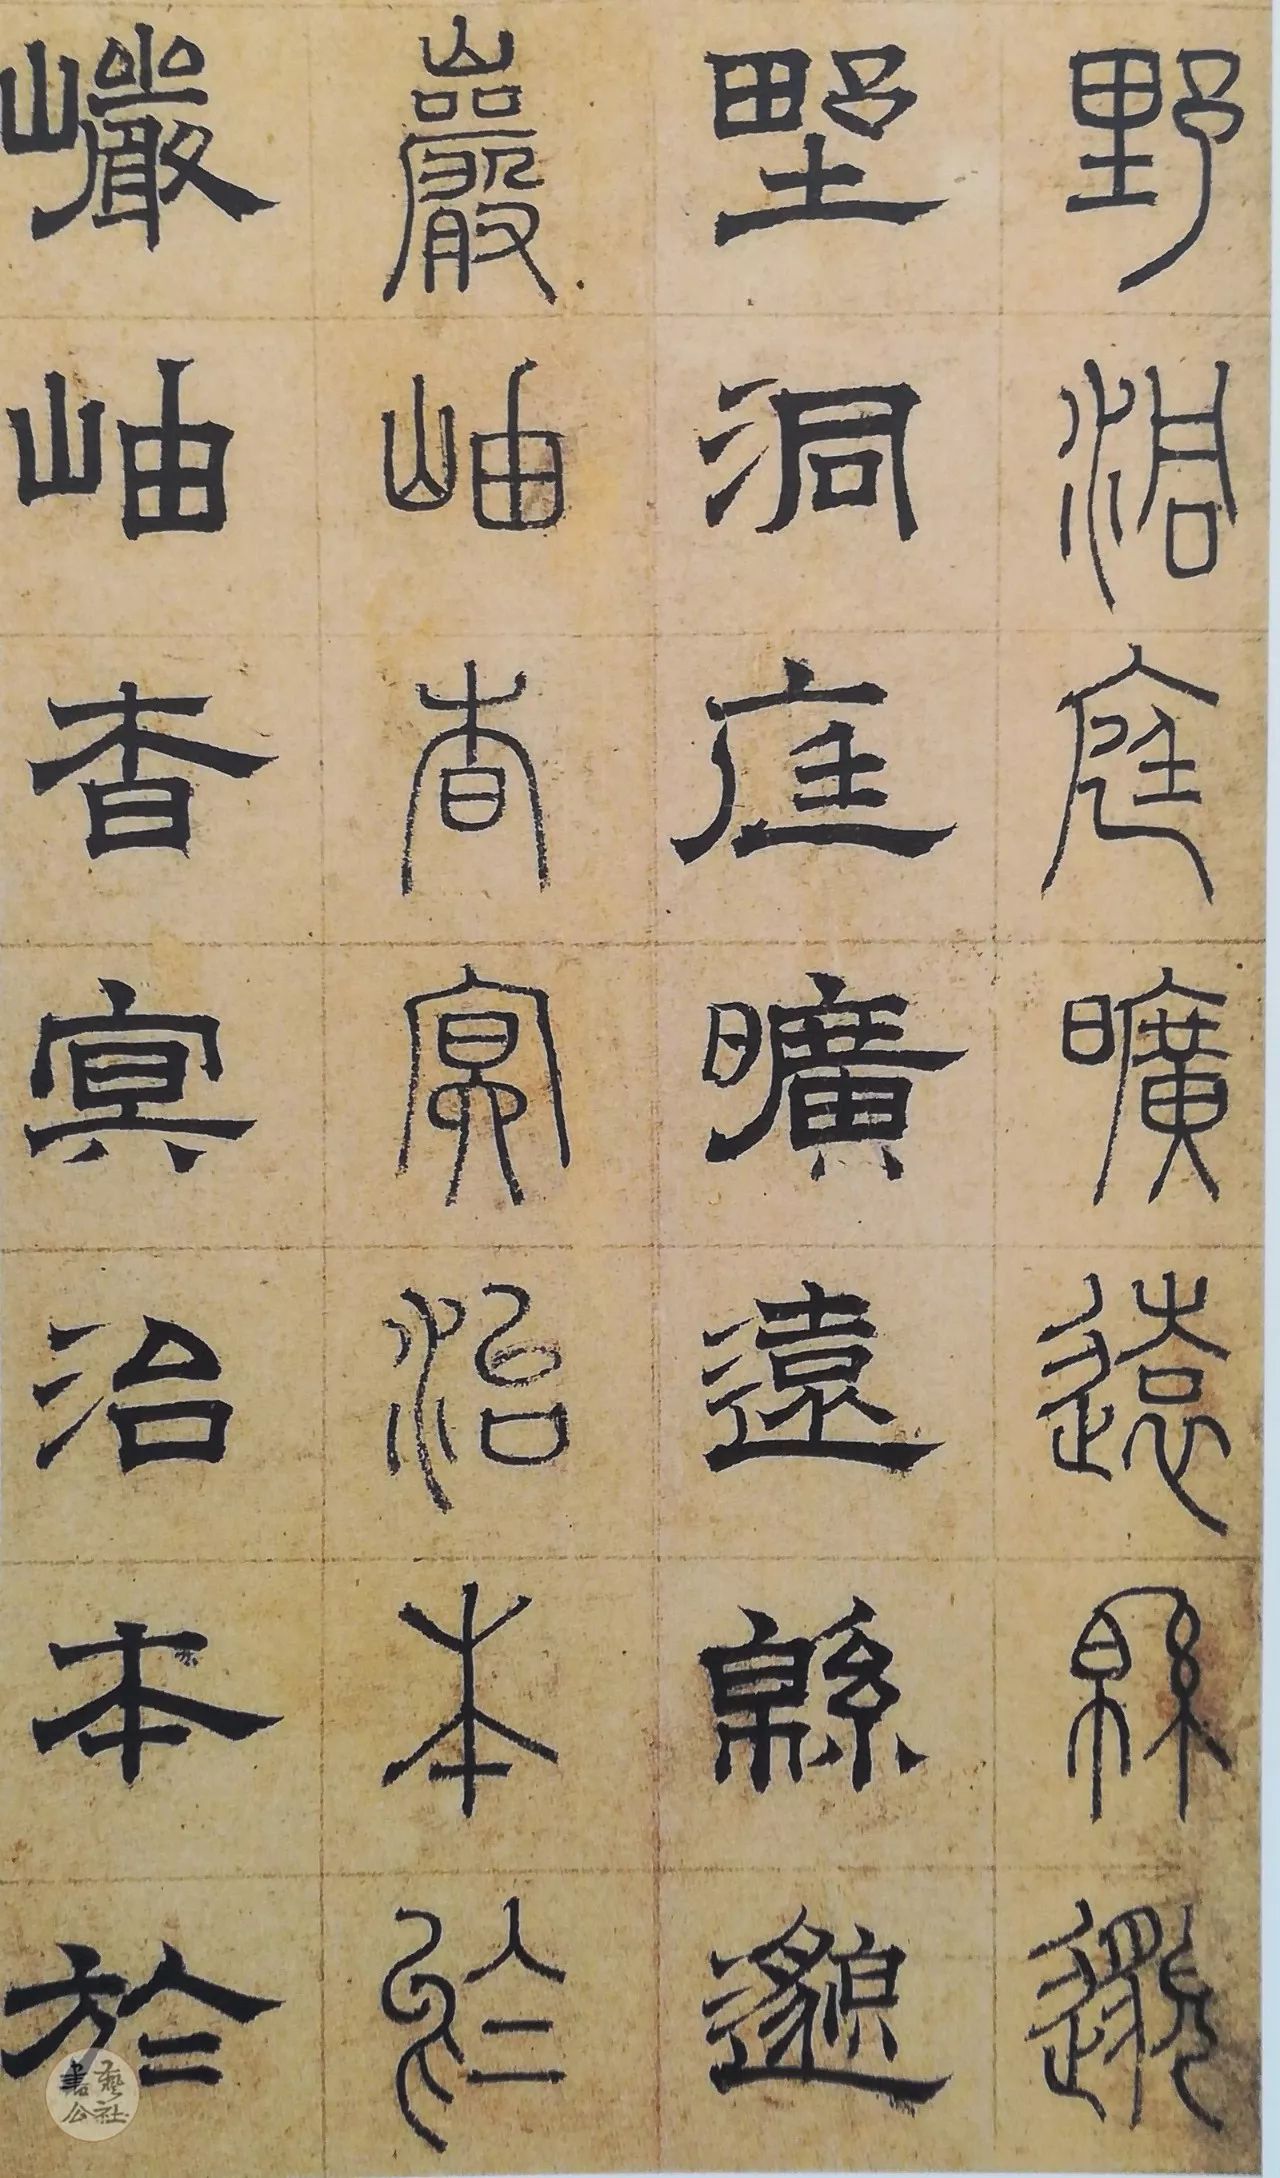 野洞庭曠遠緜邈
野洞庭曠遠緜邈
巖岫杳冥治本於
巖岫杳冥治本於
書藝公社